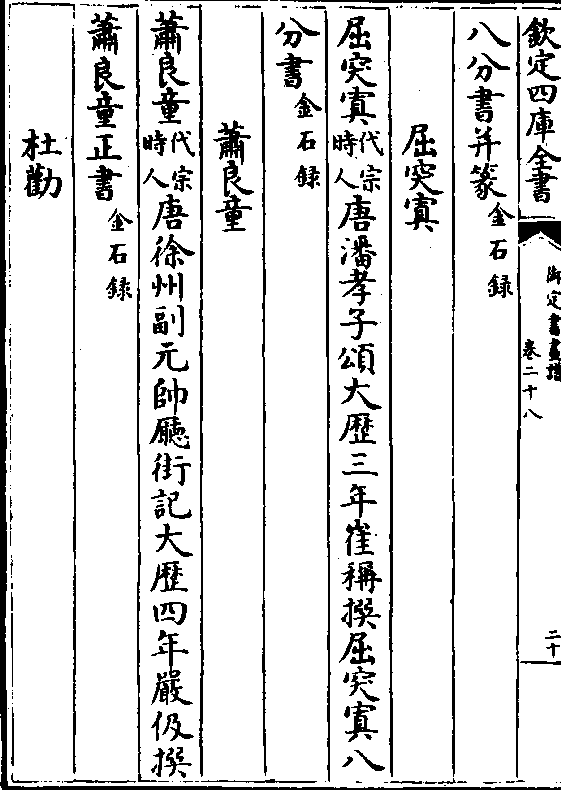 欽定四庫全書
御定書畫譜
卷二十八
二十
八分書并篆金石録
屈突寘
屈突寘代宗時人唐潘孝子頌大歴三年崔稱撰屈突寘八
分書金石録
蕭良童
蕭良童代宗時人唐徐州副元帥廳街記大歴四年嚴伋撰
蕭良童正書金石録
杜勸